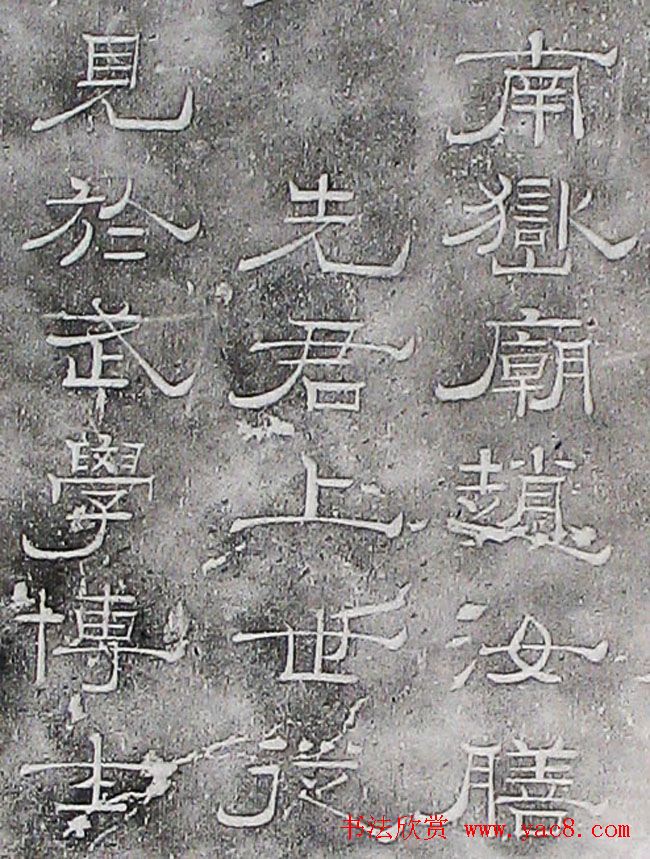 南嶽廟趙汝膳
先君上世從
見於武學博士
书法欣赏 www.yac8.com